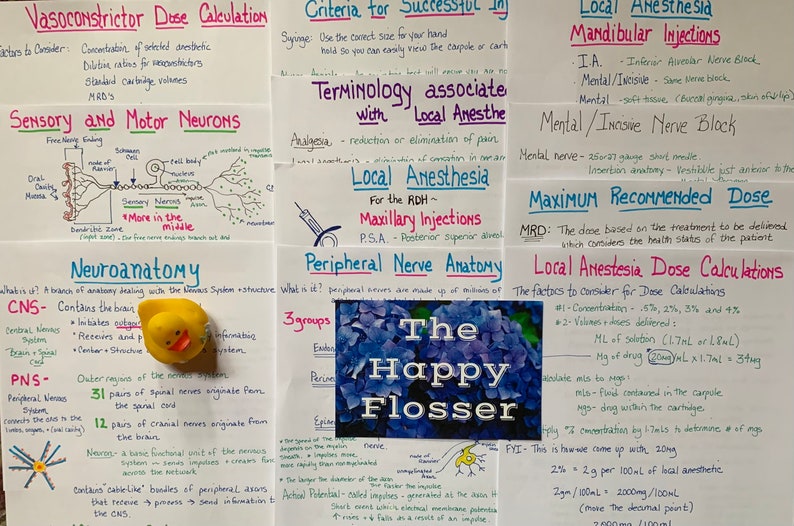 Vasoconstrictor Dose Calculation
Factors to Consider: Concentration of selected anesthetic
Dilution ratios for vasoconstrictors
Standard cartridge volumes
MRD's
Criteria for Successful Inj
Syringe: Use the correct size for your hand
hold so you can easily view the carpule or cart
Local Anesthesia
Mandibular Injections
· I.A. - Inferior Alveolar Nerve Block
· Mental/Incisive - Same Nerve block
· Mental - soft tissue (Buccal gingiva, skin of ↓ lip)
Sensory and Motor Neurons
Free Nerve Ending
node of Ranvier
Schwann Cell
Cell body
nucleus
Axon
not involved in impulse
Oral Cavity Mucosa
Sensory Nerons
*More in the middle
impulse
Dendritic Zone
(input zone) - the free nerve endings branch out and
Terminology associate
with Local Anesthe
Analgesia - reduction or elimination of pain
Local Anesthesia
For the RDH ~
Maxillary Injections
P.S.A. - Posterior superior alveol
Mental/Incisive Nerve Block
Mental nerve - 25 or 27 gauge short needle.
Insertion anatomy - Vestibule just anterior to the
Maximum Recommended Dose
MRD: The dose based on the treatment to be delivered
which considers the health status of the patient
Neuroanatomy
What is it? A branch of anatomy dealing with the Nervous System + structure
CNS- Contains the brain
Central Nervous System
Brain + Spinal Cord
* Initiates outgoi
* Receives and p information
* Center + Structure system
PNS- Outer regions of the nervous system
Peripheral Nervous System
Connects the CNS to the limbs, organs, + (oral cavity)
31 pairs of spinal nerves originate from
the spinal cord
12 pairs of cranial nerves originate from
the brain
Neuron - a basic functional unit of the nervous
system - sends impulses + creates func
across the network
Contains "cable-like" bundles of peripheral axons
that receive → process → send information t
the CNS.
Peripheral Nerve Anatomy
What is it? peripheral nerves are made up of millions of
3 groups
Endon
Perine
Epine
The
Happy
Flosser
nerve.
* The speed of the impulse
depends on the myelin
sheath. * impulses move
more rapidly than nonmyelinated
* The larger the diameter of the axon
The faster the impulse
node of Ranvier
unmyelinated Axon
Action Potential - called impulses - generated at the axon H
Short event which electrical membrane potential
↑ rises + ↓ falls as a result of an impulse.
Local Anestesia Dose Calculations
The factors to consider for Dose Calculations
#1 - Concentration - .5%, 2%, 3% and 4%
#2 - Volumes + doses delivered:
ML of solution (1.7mL or 1.8mL)
Mg of drug 20mg/mL x 1.7mL = 34mg
alculate mLs to Mgs:
mLs - fluid contained in the carpule
Mgs - drug within the cartridge.
ply % concentration by 1.7mLs to determine # of mgs
FYI - This is how we come up with 20mg
2% = 2g per 100mL of local anesthetic
2gm/100mL = 2000mg/100mL
(move the decimal point)
2000mg/100